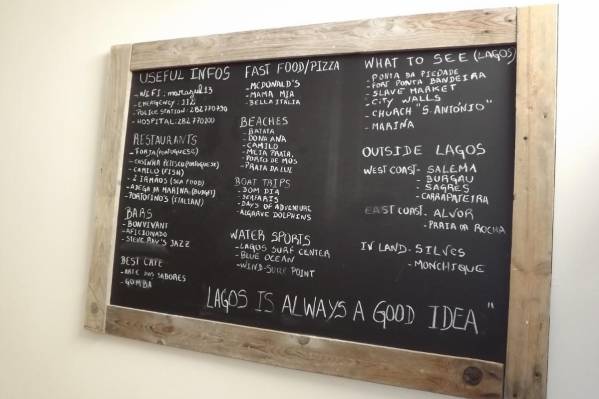 USEFUL INFOS
- WIFI: marazul13
- EMERGENCY: 112
- POLICE STATION: 282770930
- HOSPITAL: 282770100
RESTAURANTS
- FORJA (PORTUGUESE)
- COSINHA PETISCO (PORTUGUESE)
- CAMILO (FISH)
- 2 IRMÃOS (SEA FOOD)
- ADEGA DA MARINA (BUDGET)
- PORTOFINO'S (ITALIAN)
BARS
- BONVIVANT
- AFICIONADO
- STEVIE RAY'S JAZZ
BEST CAFE
- ARTE DOS SABORES
- GOMBA
FAST FOOD/PIZZA
- MCDONALD'S
- MAMA MIA
- BELLA ITALIA
BEACHES
- BATATA
- DONA ANA
- CAMILO
- MEIA PRAIA
- PORTO DE MÓS
- PRAIA DA LUZ
BOAT TRIPS
- BOM DIA
- SEAFARIS
- DAYS OF ADVENTURE
- ALGARVE DOLPHINS
WATER SPORTS
- LAGOS SURF CENTER
- BLUE OCEAN
- WIND-SURF POINT
WHAT TO SEE (LAGOS)
- PONTA DA PIEDADE
- FORT PONTA BANDEIRA
- SLAVE MARKET
- CITY WALLS
- CHURCH "S. ANTÓNIO"
- MARINA
OUTSIDE LAGOS
WEST COAST - SALEMA
- BURGAU
- SAGRES
- CARRAPATEIRA
EAST COAST - ALVOR
- PRAIA DA ROCHA
IN LAND - SILVES
- MONCHIQUE
LAGOS IS ALWAYS A GOOD IDEA"